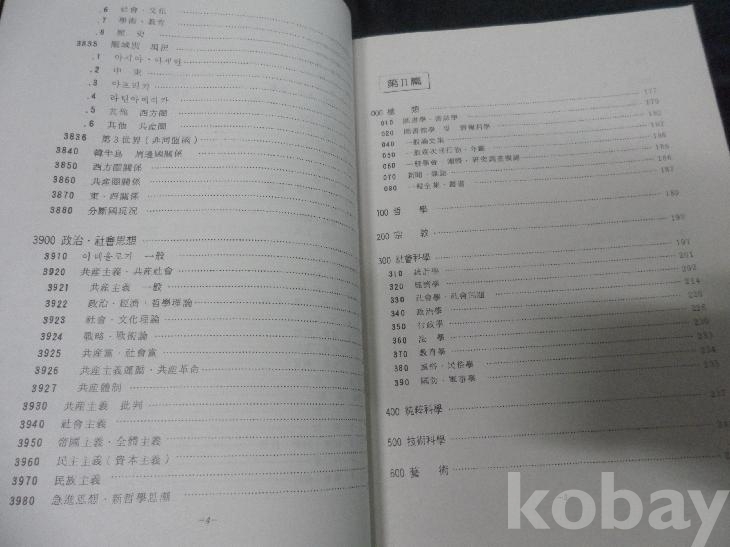 .6 社會·文化
.7 學術·敎育
.8 歷 史
3835 圈域別 現況
.1 아시아·아세안
.2 中 東
.3 아프리카
.4 라틴아메리카
.5 其他 西方圈
.6 其他 共産圈
3836 第3世界(非同盟國)
3840 韓半島 周邊國關係
3850 西方圈關係
3860 共産圈關係
3870 東·西關係
3880 分斷國現況
3900 政治·社會思想
3910 이데올로기 一般
3920 共産主義·共産社會
3921 共産主義 一般
3922 政治·經濟·哲學理論
3923 社會·文化理論
3924 戰略·戰術論
3925 共産黨·社會黨
3926 共産主義運動·共産革命
3927 共産體制
3930 共産主義 批判
3940 社會主義
3950 帝國主義·全體主義
3960 民主主義(資本主義)
3970 民族主義
3980 急進思想·新哲學思潮
-4-
第II篇
000 總 類 177
010 圖書學·書誌學 179
020 圖書館學 및 情報科學 182
040 一般論文集 182
050 一般逐次刊行物·年鑑 185
060 一般學會 185
070 新聞·雜誌 187
080 一般全集·叢書
100 哲 學 189
200 宗 敎 190
300 社會科學 191
310 統計學 201
320 經濟學 202
330 社會學·社會問題 214
340 政治學
350 行政學
360 法 學
370 敎育學
380 風俗·民俗學 234
390 國防·軍事學
400 純粹科學
500 技術科學
600 藝 術
kobay